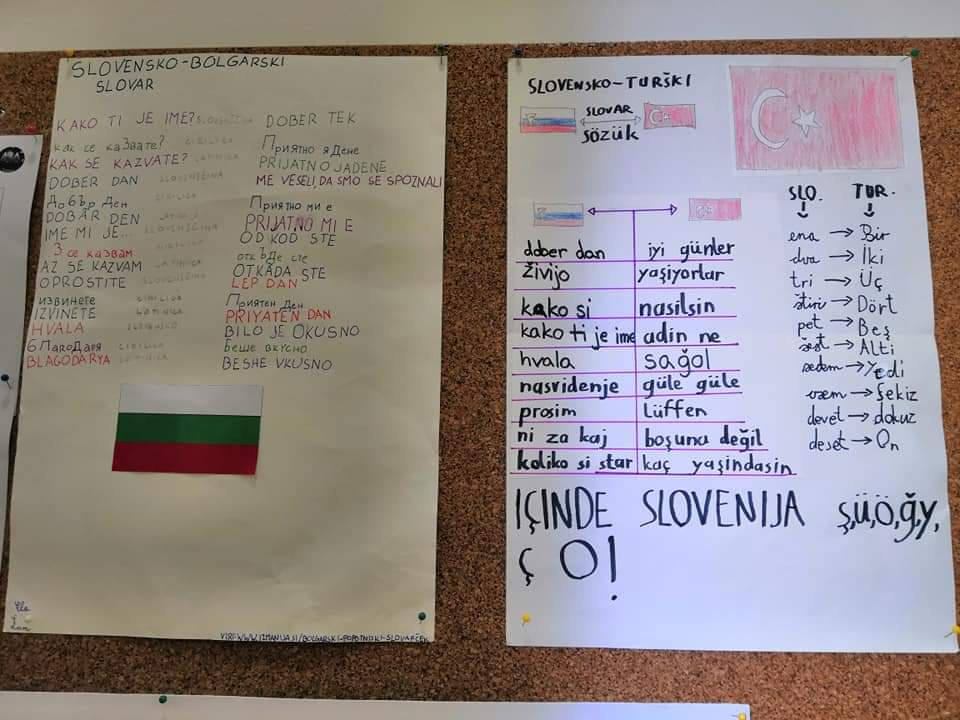 SLOVENSKO-BOLGARSKI
SLOVAR
KAKO TI JE IME? SLOVENŠČINA
как се каЗвате? CIRILICA
KAK SE KAZVATE? LATINICA
DOBER DAN SLOVENŠČINA
Добър Ден CIRILICA
DOBAR DEN LATINICA
IME MI JE... SLOVENŠČINA
З се казвам CIRILICA
AZ SE KAZVAM LATINICA
OPROSTITE SLOVENŠČINA
извинете CIRILICA
IZVINETE LATINICA
HVALA SLOVENSKO
блаГоДаря CIRILICA
BLAGODARYA LATINICA
DOBER TEK
Приятно яДене
PRIJATNO JADENE
ME VESELI, DA SMO SE SPOZNALI
Приятно ми е
PRIJATNO MI E
OD KOD STE
откъДе сте
OTKADA STE
LEP DAN
Приятен Ден
PRIYATEN DAN
BILO JE OKUSNO
Беше вкусно
BESHE VKUSNO
VIRI: WWW.IZMANIJA.SI/BOLGARSKI-POPOTNISKI-SLOVARČEK
SLOVENSKO-TURŠKI
SLOVAR
SÖZÜK
dober dan iyi günler
živijo yaşiyorlar
kako si nasilsin
kako ti je ime adin ne
hvala sağol
nasvidenje güle güle
prosim lüffen
ni za kaj boşuna değil
koliko si star kaç yaşindasin
SLO. TUR.
ena → Bir
dva → İki
tri → Üç
štiri → Dört
pet → Beş
šest → Alti
sedem → Yedi
osem → Şekiz
devet → dokuz
deset → On
IÇINDE SLOVENIJA ş,ü,ö,ğ,y,
ç O!